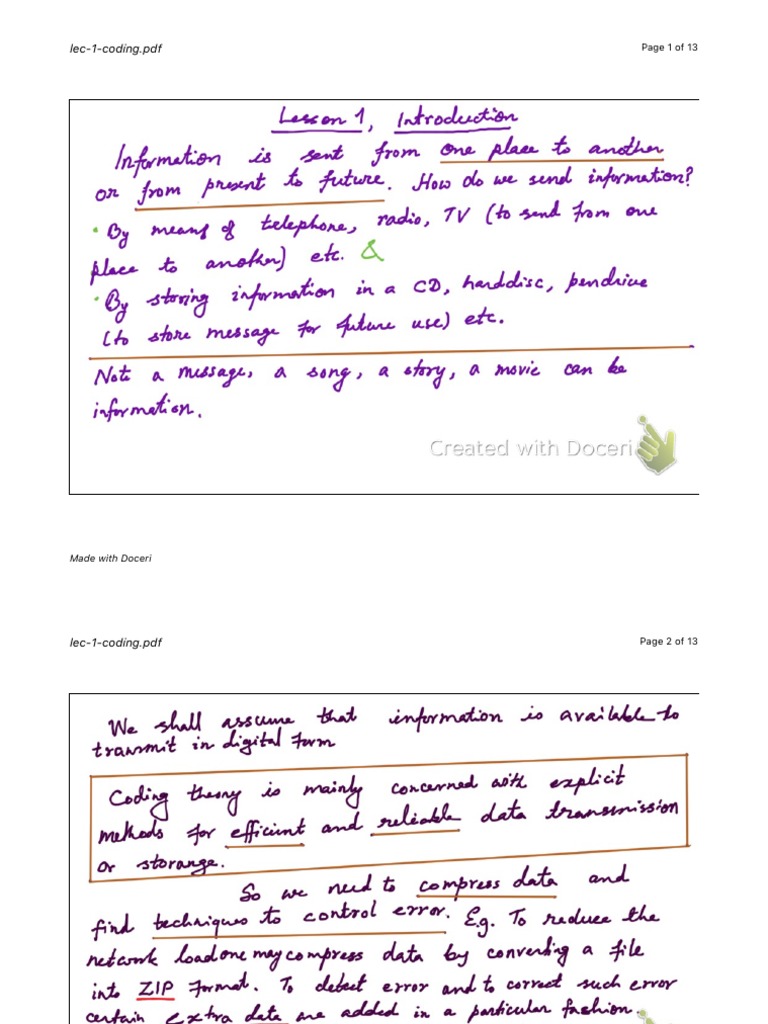 lec-1-coding.pdf
Page 1 of 13
Lesson 1, Introduction
Information is sent from one place to another
or from present to future. How do we send information?
• By means of telephone, radio, TV (to send from one
place to another) etc. &
• By storing information in a CD, harddisc, pendrive
(to store message for future use) etc.
Note a message, a song, a story, a movie can be
information.
Created with Doceri
Made with Doceri
lec-1-coding.pdf
Page 2 of 13
We shall assume that information is available to
transmit in digital form
Coding theory is mainly concerned with explicit
methods for efficient and reliable data transmission
or storange.
So we need to compress data and
find techniques to control error. E.g. To reduce the
network load one may compress data by converting a file
into ZIP format. To detect error and to correct such error
certain extra data are added in a particular fashion.